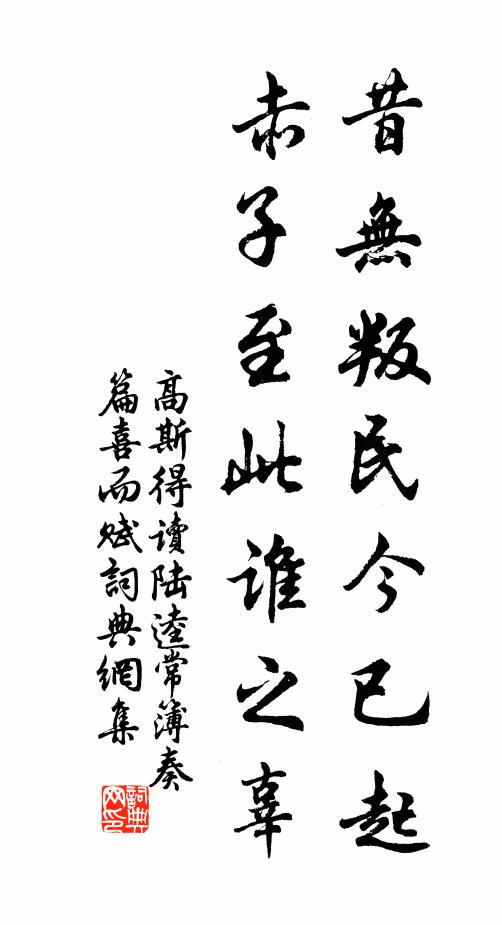 昔無叛民今已起
赤子至此誰之辜
高斯得讀陸逵常簿奏
篇喜而賦詞典網集
詞典网印